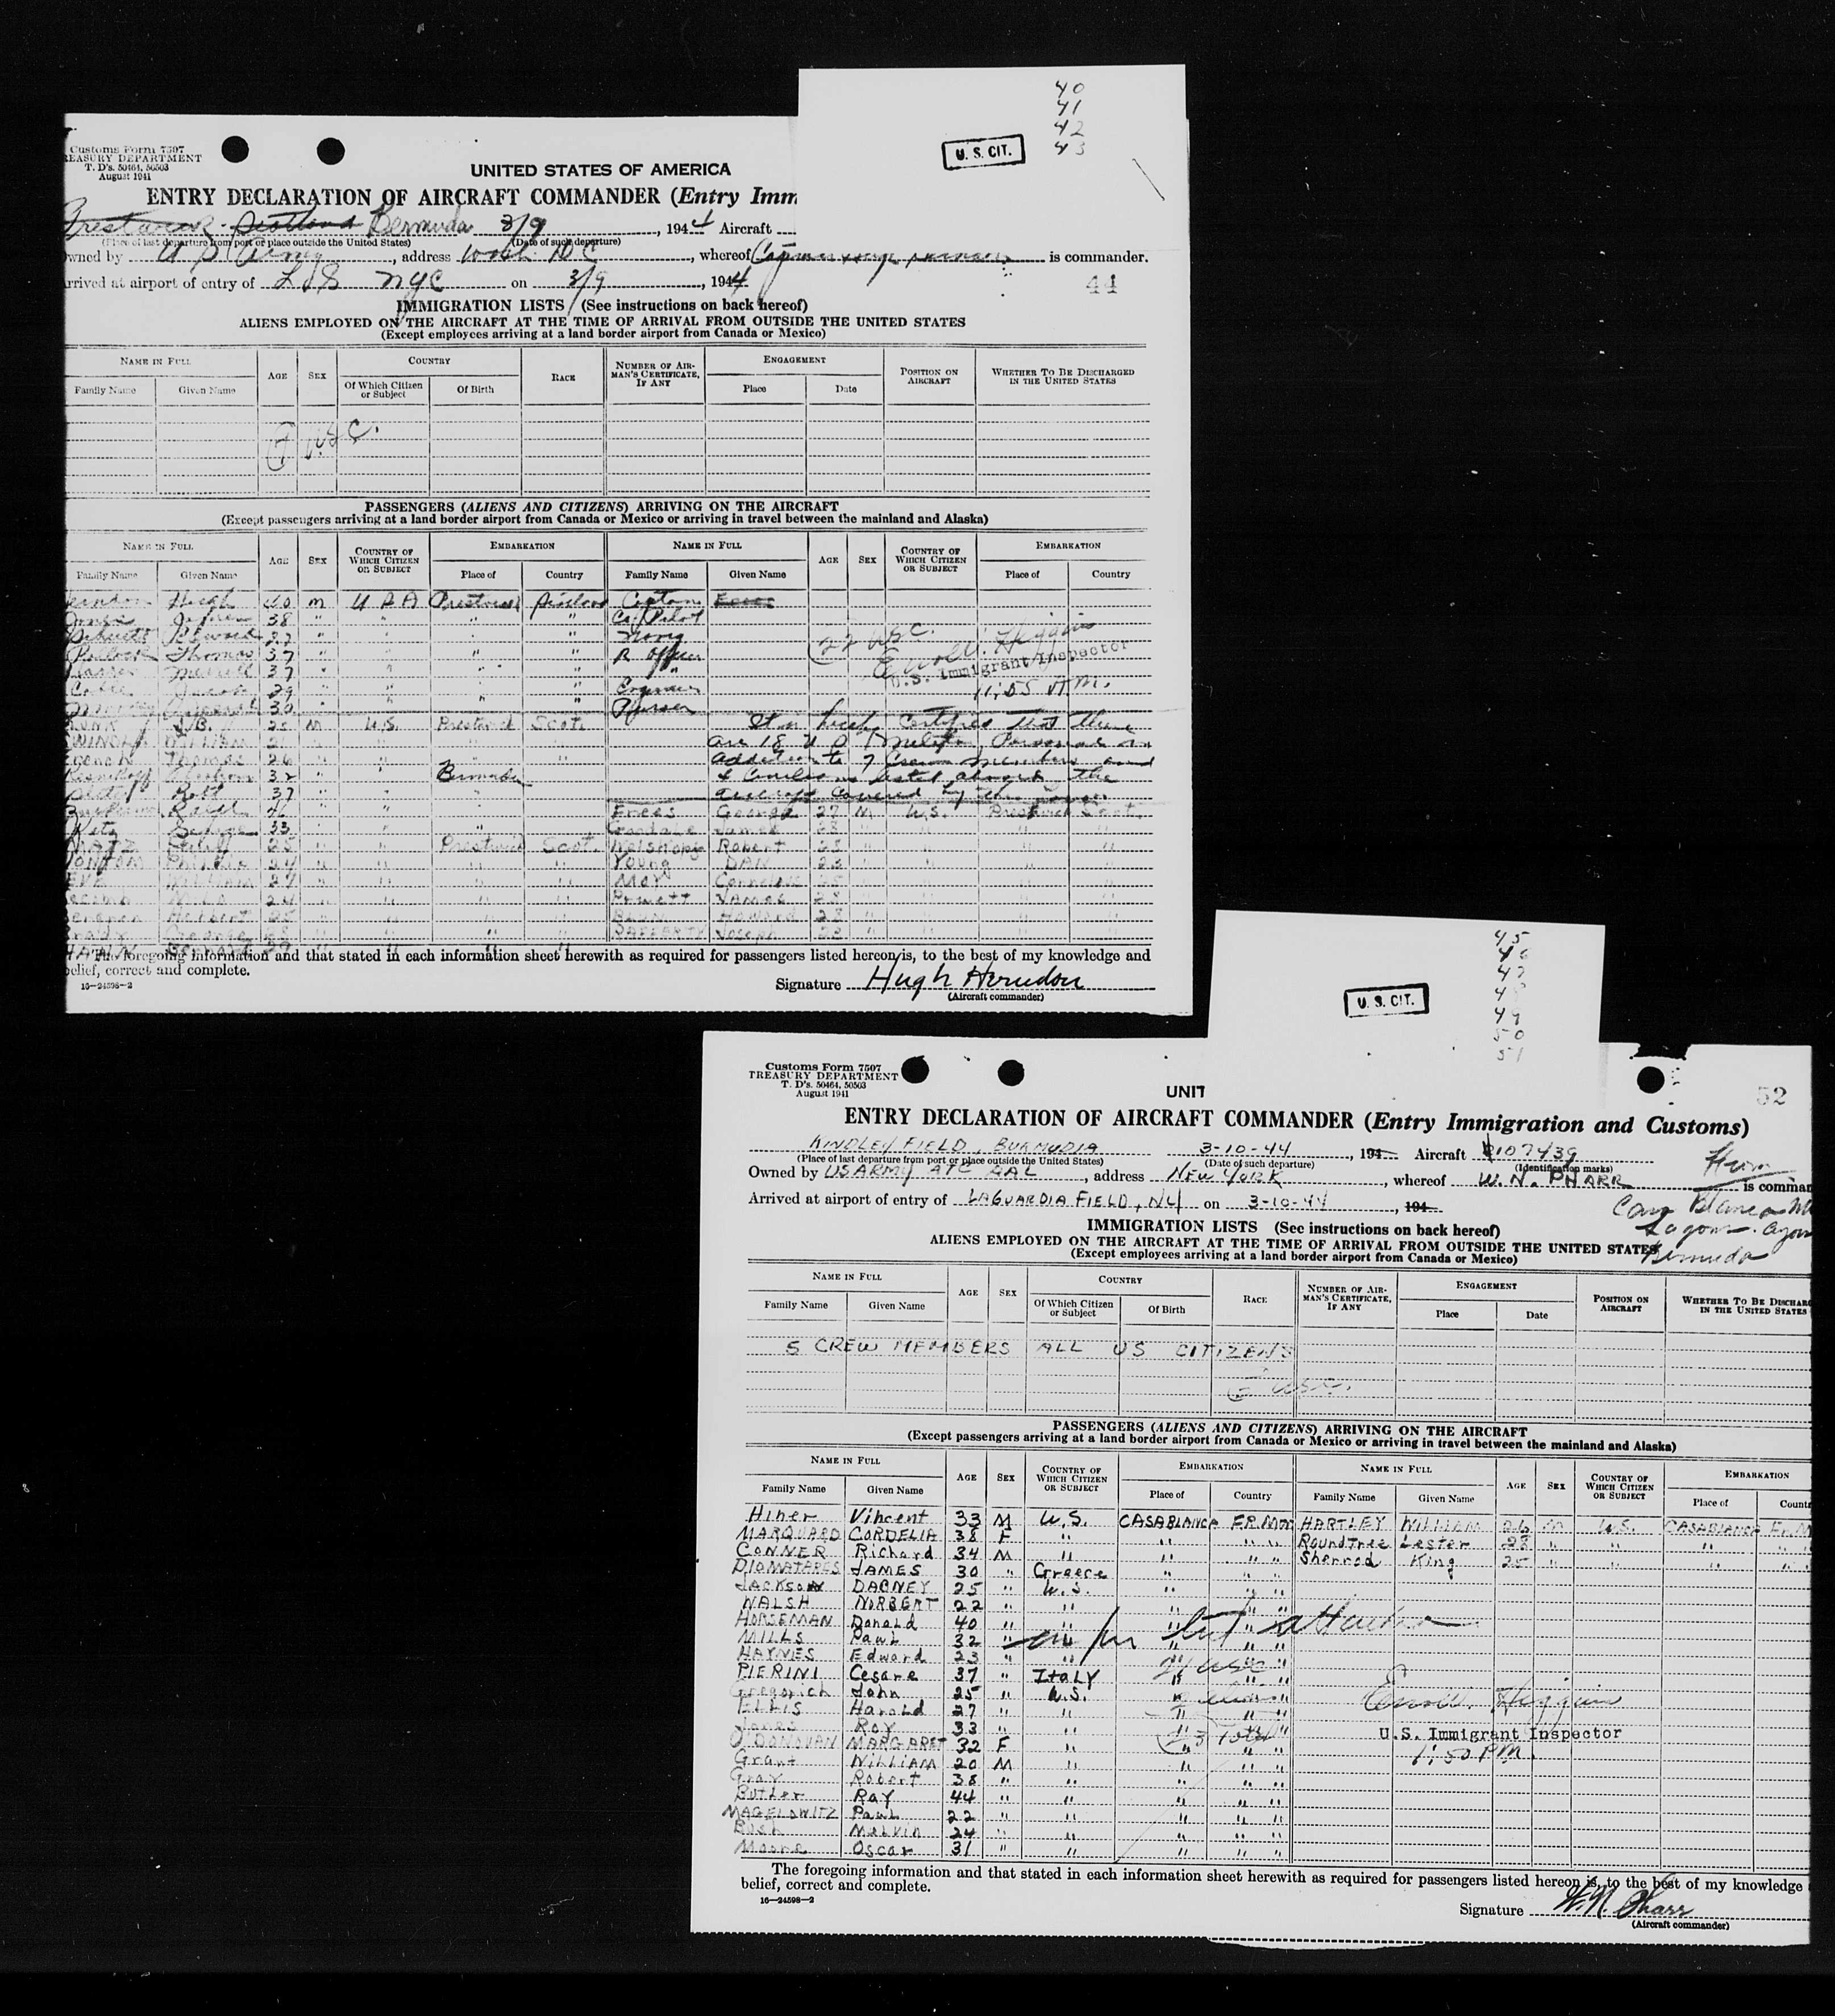 40
41
42
43
U. S. CIT.
Customs Form 7507
REASURY DEPARTMENT
T. D's. 50464, 50503
August 1941
UNITED STATES OF AMERICA
ENTRY DECLARATION OF AIRCRAFT COMMANDER (Entry Imm
Prestwick Scotland Bermuda 3/9, 1944 Aircraft
(Place of last departure from port or place outside the United States) (Date of such departure)
wned by U S Army, address Wash DC, whereof is commander.
rrived at airport of entry of NYC on 3/9, 1944
44
IMMIGRATION LISTS (See instructions on back hereof)
ALIENS EMPLOYED ON THE AIRCRAFT AT THE TIME OF ARRIVAL FROM OUTSIDE THE UNITED STATES
(Except employees arriving at a land border airport from Canada or Mexico)
NAME IN FULL AGE SEX COUNTRY RACE NUMBER OF AIRMAN'S CERTIFICATE, IF ANY ENGAGEMENT POSITION ON AIRCRAFT WHETHER TO BE DISCHARGED IN THE UNITED STATES
Family Name Given Name Of Which Citizen or Subject Of Birth Place Date
7 USC.
PASSENGERS (ALIENS AND CITIZENS) ARRIVING ON THE AIRCRAFT
(Except passengers arriving at a land border airport from Canada or Mexico or arriving in travel between the mainland and Alaska)
NAME IN FULL AGE SEX COUNTRY OF WHICH CITIZEN OR SUBJECT EMBARKATION NAME IN FULL AGE SEX COUNTRY OF WHICH CITIZEN OR SUBJECT EMBARKATION
Family Name Given Name Place of Country Family Name Given Name Place of Country
Herndon Hugh 40 M U S A Prestwick Scotland Captain
Jones James 38 " " " " Co/Pilot
Edward 27 " " " " Navig
Pollock Thomas 37 " " " " R Officer
Merrill 37 " " " " "
29 " " " " Engineer
30 " " " " Purser
J.B. 25 M U.S. Prestwick Scot.
William 21 " "
Thomas 26 " "
Abraham 32 " Bermuda
Robt 37 " "
Ralph
George 33 " "
MATZ 25 " Prestwick Scot.
Phillip 24 " " " "
William 27 " " " "
24 " " " "
Herbert 25 " " " "
George 28 " " " "
HANN Bernard 29 " " " "
22 USC.
Higgins
U.S. Immigrant Inspector
11:55 A.M.
It is hereby certified that there
are 18 U S Military Personnel in
addition to 7 Crew members and
4 Civilians listed aboard the
aircraft covered by this
Frees George 27 M U.S. Prestwick Scot.
Goodale James 28 " " " "
Robert 25 " " " "
Young DAN 23 " " " "
MOY Cornelius 25 " " " "
Prewett James 28 " " " "
Howard 28 " " " "
RAFFERTY Joseph 28 " " " "
The foregoing information and that stated in each information sheet herewith as required for passengers listed hereon is, to the best of my knowledge and
elief, correct and complete.
16—24598—2
Signature Hugh Herndon
(Aircraft commander)
45
46
47
48
49
50
51
U. S. CIT.
Customs Form 7507
TREASURY DEPARTMENT
T. D's. 50464, 50503
August 1941
UNIT
52
ENTRY DECLARATION OF AIRCRAFT COMMANDER (Entry Immigration and Customs)
KINDLEY FIELD, BURMUDIA 3-10-44, 194 Aircraft 107439
(Place of last departure from port or place outside the United States) (Date of such departure) (Identification marks)
Owned by US ARMY ATC AAL, address NEW YORK, whereof W. N. PHARR is comman
From
Arrived at airport of entry of LAGUARDIA FIELD, NY on 3-10-44, 194
Casa Blanca
Lagens. Azor
Bermuda
IMMIGRATION LISTS (See instructions on back hereof)
ALIENS EMPLOYED ON THE AIRCRAFT AT THE TIME OF ARRIVAL FROM OUTSIDE THE UNITED STATES
(Except employees arriving at a land border airport from Canada or Mexico)
NAME IN FULL AGE SEX COUNTRY RACE NUMBER OF AIRMAN'S CERTIFICATE, IF ANY ENGAGEMENT POSITION ON AIRCRAFT WHETHER TO BE DISCHAR IN THE UNITED STATES
Family Name Given Name Of Which Citizen or Subject Of Birth Place Date
5 CREW MEMBERS ALL US CITIZENS
5 USC.
PASSENGERS (ALIENS AND CITIZENS) ARRIVING ON THE AIRCRAFT
(Except passengers arriving at a land border airport from Canada or Mexico or arriving in travel between the mainland and Alaska)
NAME IN FULL AGE SEX COUNTRY OF WHICH CITIZEN OR SUBJECT EMBARKATION NAME IN FULL AGE SEX COUNTRY OF WHICH CITIZEN OR SUBJECT EMBARKATION
Family Name Given Name Place of Country Family Name Given Name Place of Countr
Hiner Vincent 33 M U.S. CASABLANCA FR.MOR HARTLEY WILLIAM 26 M U.S. CASABLANCA Fr.M
MARQUARD CORDELIA 38 F " " " " Roundtree Lester 28 " " " " "
CONNER Richard 34 M " " " " Sherrod King 25 " " " " "
DIOMATARES JAMES 30 " Greece " " "
JACKSON DABNEY 25 " U.S. " " "
WALSH NORBERT 22 " " " " "
HORSEMAN Donald 40 " " " "
MILLS Paul 32 " " " " "
as per list attached
HAYNES Edward 23 " " " "
PIERINI Cesare 37 " ItaLY " " "
21 USC
Gregorich John 25 " U.S. " "
2 aliens
ELLIS Harold 27 " " " "
Jones Roy 33 " " " "
23 Total
O'DONOVAN MARGARET 32 F " " " "
Grant William 20 M " " " "
Gray Robert 38 " " " " "
Butler Ray 44 " " " " "
MAGELOWITZ Paul 22 " " " " "
Bush Melvin 24 " " " " "
Moore Oscar 31 " " " " "
Higgins
U.S. Immigrant Inspector
1:50 PM
The foregoing information and that stated in each information sheet herewith as required for passengers listed hereon is, to the best of my knowledge
belief, correct and complete.
16—24598—2
Signature W.N. Pharr
(Aircraft commander)